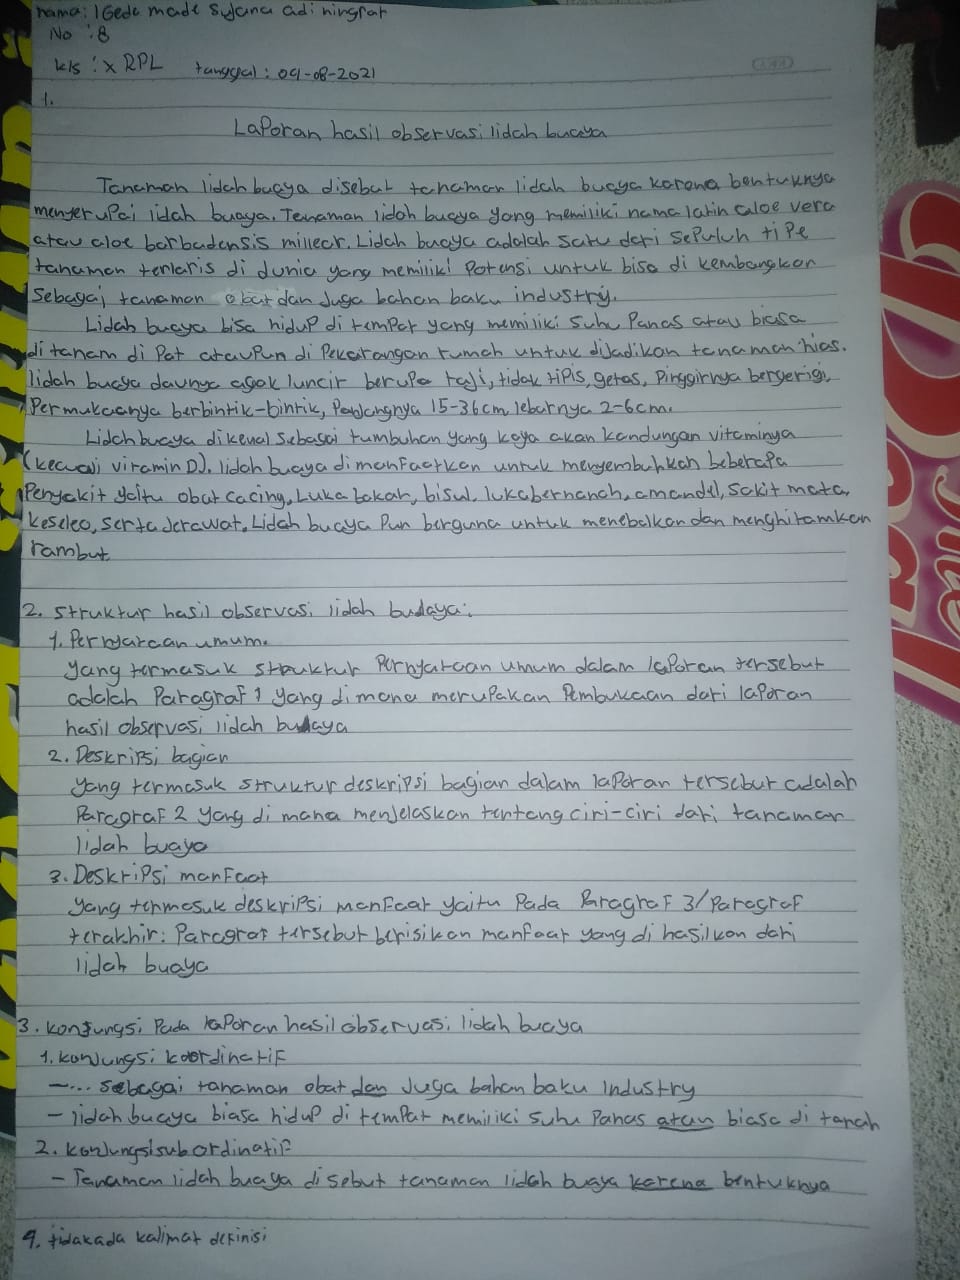 nama : I Gede made sujana adi ningrat
No : 8
kls : x RPL tanggal : 09-08-2021
1.
Laporan hasil observasi lidah buaya
Tanaman lidah buaya disebut tanaman lidah buaya karena bentuknya
menyerupai lidah buaya. Tanaman lidah buaya yang memiliki nama latin aloe vera
atau aloe barbadensis millear. Lidah buaya adalah satu dari sepuluh tipe
tanaman terlaris di dunia yang memiliki potensi untuk bisa di kembangkan
sebagai tanaman obat dan juga bahan baku industry.
Lidah buaya bisa hidup di tempat yang memiliki suhu panas atau biasa
di tanam di pot ataupun di pekarangan rumah untuk dijadikan tanaman hias.
lidah buaya daunya agak luncir berupa taji, tidak tipis, getas, pinggirnya bergerigi,
permukaanya berbintik-bintik, panjangnya 15-36 cm, lebarnya 2-6 cm.
Lidah buaya dikenal sebagai tumbuhan yang kaya akan kandungan vitaminya
(kecuali vitamin D). lidah buaya dimanfaatkan untuk menyembuhkan beberapa
penyakit yaitu obat cacing, Luka bakar, bisul, luka bernanah, amandel, sakit mata,
keseleo, serta jerawat. Lidah buaya pun berguna untuk menebalkan dan menghitamkan
rambut
2. struktur hasil observasi lidah budaya :
1. Pernyataan umum.
yang termasuk struktur pernyataan umum dalam laporan tersebut
adalah Paragraf 1 yang dimana merupakan Pembukaan dari laporan
hasil observasi lidah buaya
2. Deskripsi bagian
yang termasuk struktur deskripsi bagian dalam laporan tersebut adalah
Paragraf 2 yang di mana menjelaskan tentang ciri-ciri dari tanaman
lidah buaya
3. Deskripsi manfaat
yang termasuk deskripsi manfaat yaitu pada Paragraf 3/paragraf
terakhir. Paragraf tersebut berisikan manfaat yang di hasilkan dari
lidah buaya
3. konjungsi pada laporan hasil observasi lidah buaya
1. konjungsi koordinatif
- ... sebagai tanaman obat dan juga bahan baku industry
- lidah buaya biasa hidup di tempat memiliki suhu panas atau biasa di tanah
2. konjungsi subordinatif
- Tanaman lidah buaya di sebut tanaman lidah buaya karena bentuknya
4. tidak ada kalimat definisi